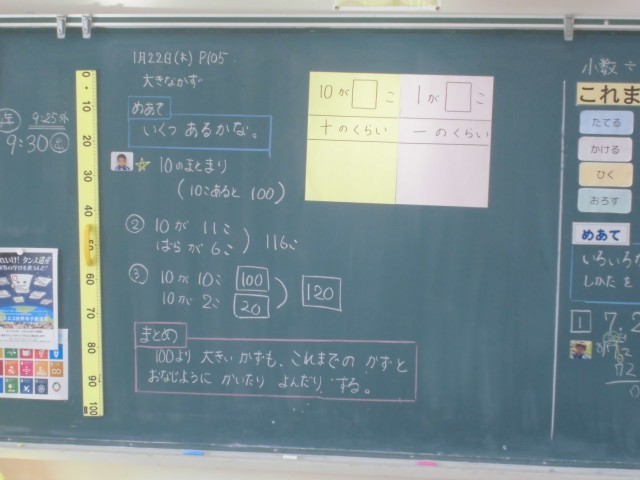 1月22日(木) P105
大きなかず
めあて
いくつ あるかな。
10のまとまり
(10こあると 100)
② 10が 11こ
ばらが 6こ
116こ
③ 10が 10こ 100
10が 2こ 20
120
まとめ
100より 大きい かずも、これまでの かずと
おなじように かいたり よんだり する。
10が□こ
1が□こ
十のくらい
一のくらい
9:25
9:30
0
10
20
30
40
50
60
70
80
90
100
小数÷
これま
たてる
かける
ひく
おろす
めあて
いろいろな
しかたを
1 7.2
72